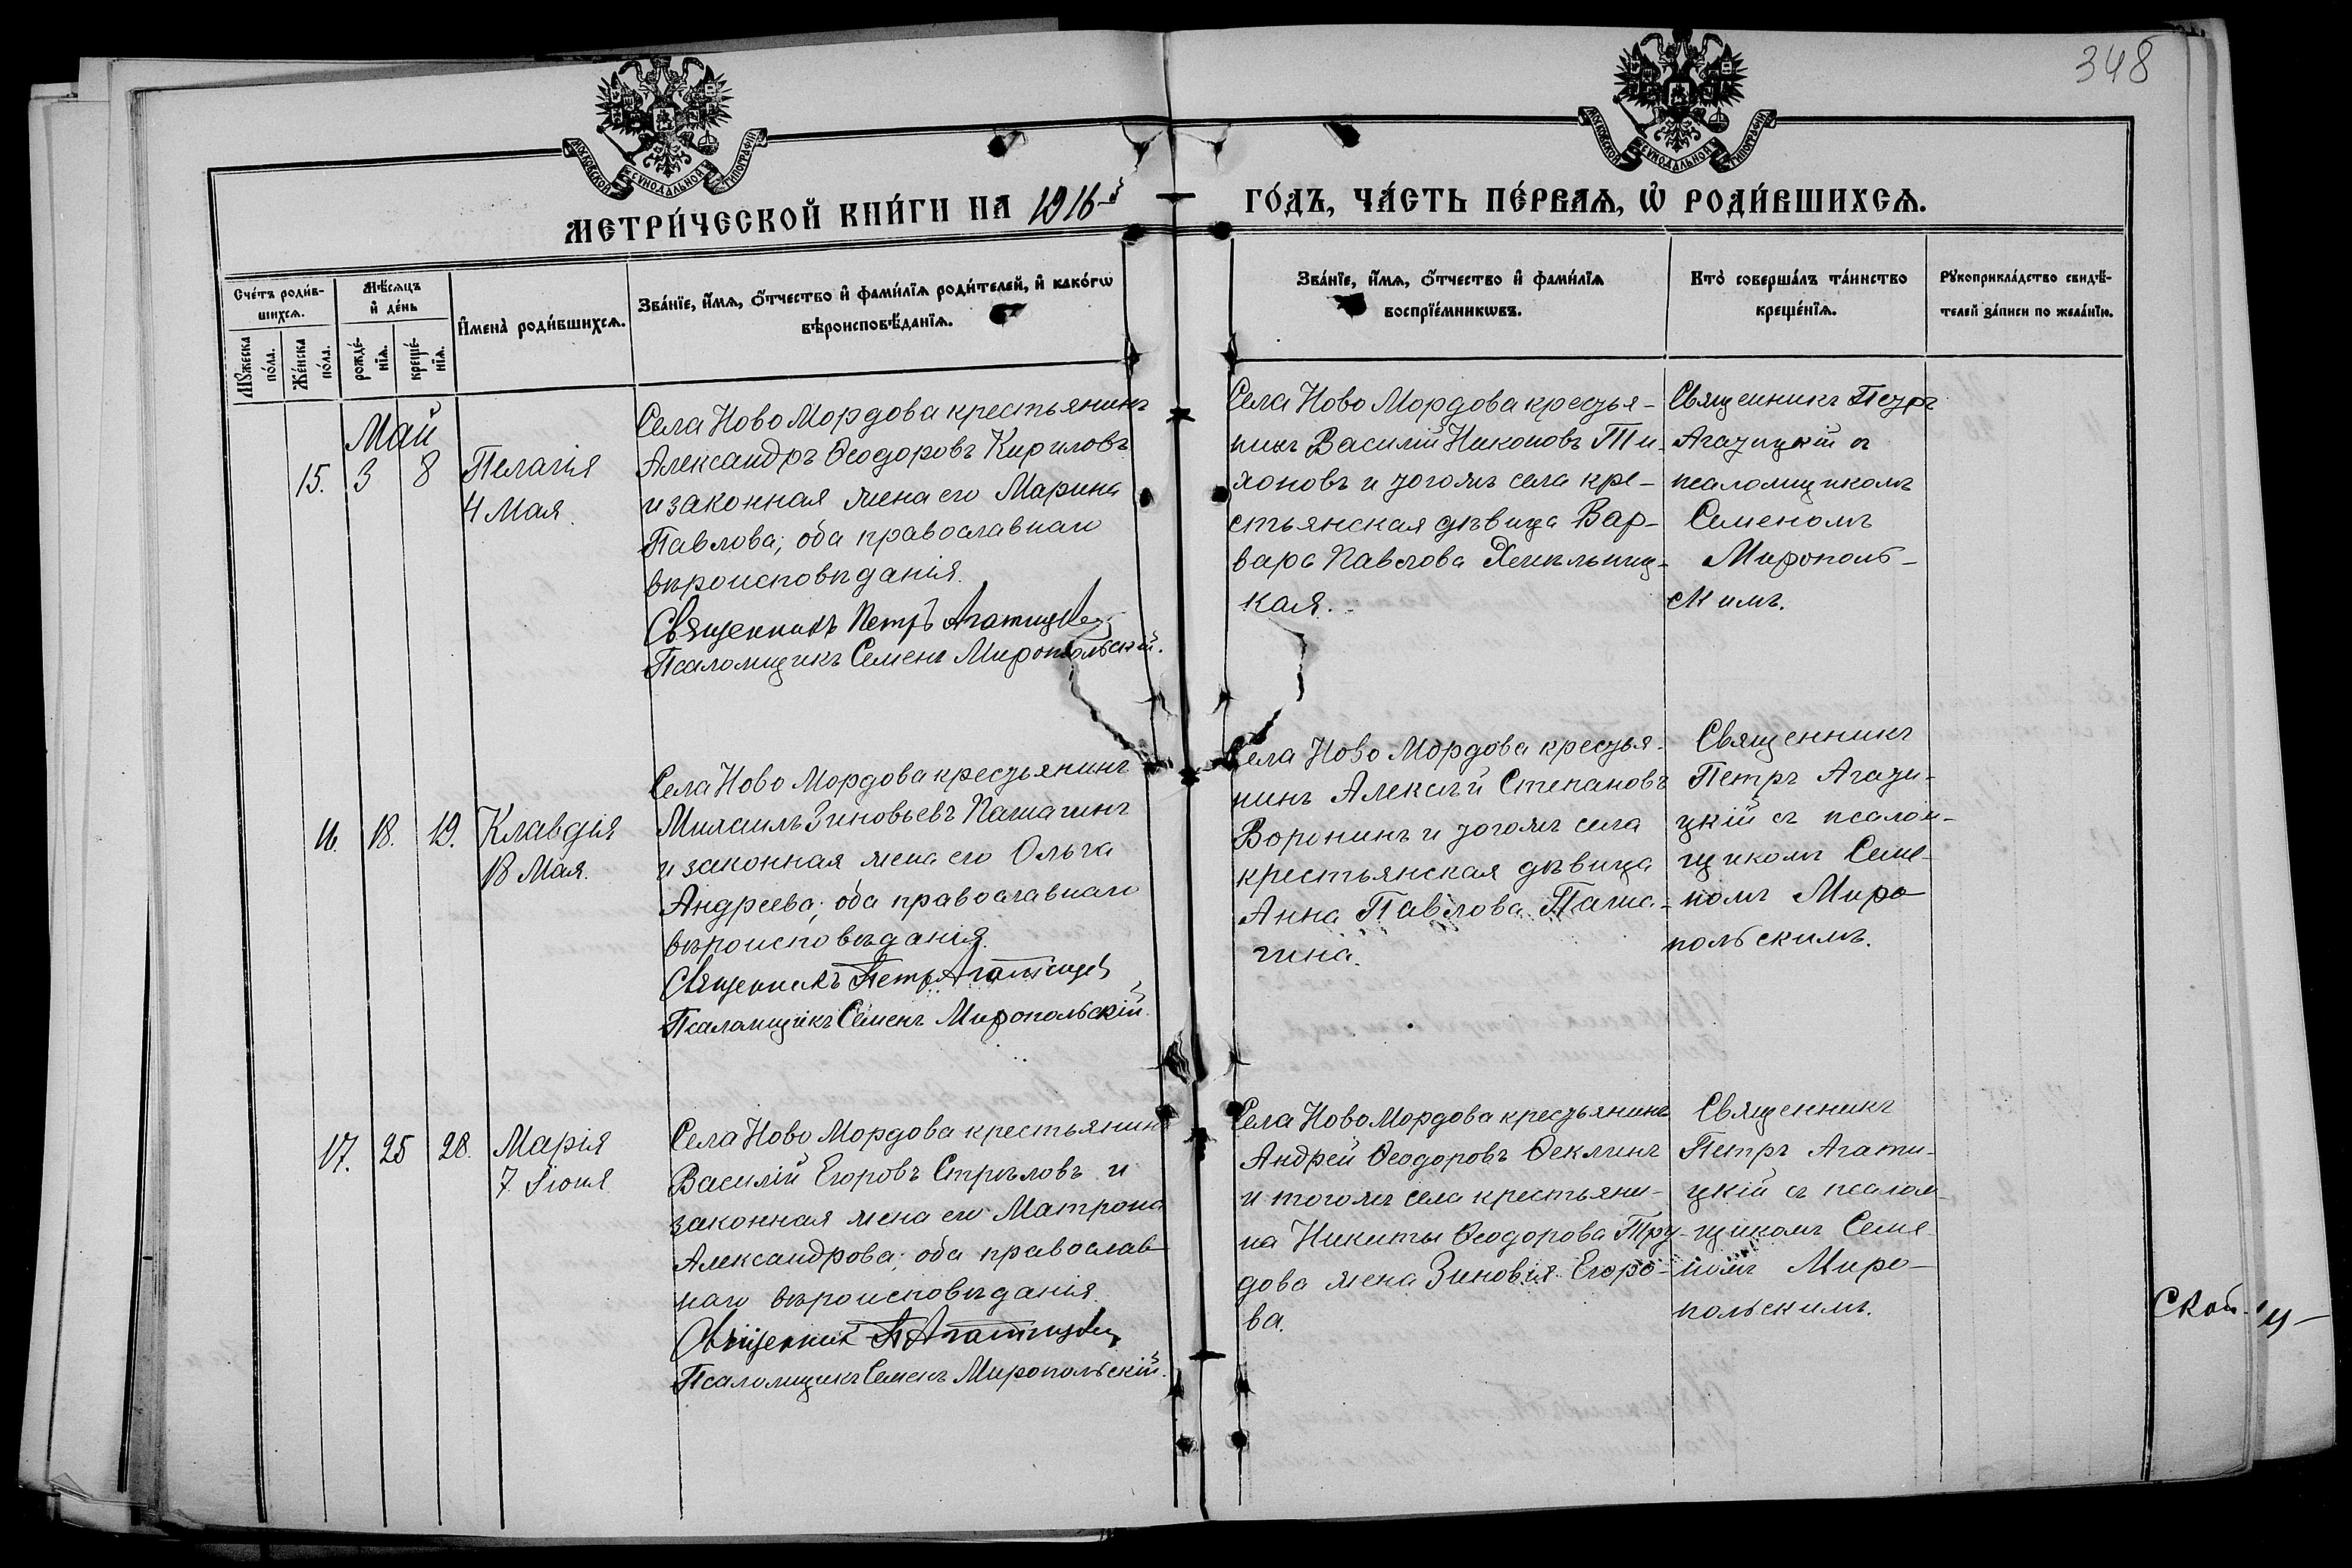 348
МОСКОВСКОЙ СѴНОДАЛЬНОЙ ТИПОГРАФІИ
МОСКОВСКОЙ СѴНОДАЛЬНОЙ ТИПОГРАФІИ
МЕТРИ́ЧЕСКОЙ КНИ́ГИ НА 1916-й ГО́ДЪ, ЧА́СТЬ ПЕ́РВАѦ, Ѽ РОДИ́ВШИХСѦ.
Сче́тъ роди́в-
шихсѧ.
Мꙋ́жеска по́ла.
Же́нска по́ла.
Мѣ́сѧцъ
и҆ де́нь
рожде́-
нїѧ.
креще́-
нїѧ.
И҆мена̀ роди́вшихсѧ.
Зва́нїе, и҆́мѧ, ѻ҆́тчество и҆ фами́лїѧ роди́телей, и҆ како́гѡ
вѣроисповѣ́данїѧ.
Зва́нїе, и҆́мѧ, ѻ҆́тчество и҆ фами́лїѧ
воспрїе́мникѡвъ.
Кто̀ соверша́лъ та́инство
креще́нїѧ.
Рꙋкоприкла́дство свидѣ́-
телей за́писи по жела́нїю.
Май
15. 3 8
Пелагія
4 Мая.
Села Ново Мордова крестьянинъ
Александръ Ѳеодоровъ Кириловъ
и законная жена его Марина
Павлова; оба православнаго
вѣроисповѣданія.
Священникъ Петръ Агатицкій
Псаломщикъ Семенъ Миропольскій.
Села Ново Мордова крестья-
нинъ Василій Никоновъ Ти-
хоновъ и тогожъ села кре-
стьянская дѣвица Вар-
вара Павлова Хмѣльниц-
кая.
Священникъ Петръ
Агатицкій съ
псаломщикомъ
Семеномъ
Мирополь-
скимъ.
16. 18. 19.
Клавдія
18 Мая.
Села Ново Мордова крестьянинъ
Михаилъ Зиновьевъ Пашагинъ
и законная жена его Ольга
Андреева; оба православнаго
вѣроисповѣданія.
Священникъ Петръ Агатицкій
Псаломщикъ Семенъ Миропольскій.
Села Ново Мордова крестья-
нинъ Алексѣй Степановъ
Воронинъ и тогожъ села
крестьянская дѣвица
Анна Павлова Паша-
гина.
Священникъ
Петръ Агати-
цкій съ псалом-
щикомъ Семе-
номъ Миро-
польскимъ.
17. 25 28.
Марія
7 Іюня
Села Ново Мордова крестьянинъ
Василій Егоровъ Стрѣловъ и
законная жена его Матрона
Александрова; оба православ-
наго вѣроисповѣданія.
Священникъ П Агатицкій
Псаломщикъ Семенъ Миропольскій.
Села Ново Мордова крестьянинъ
Андрей Ѳеодоровъ Ѳеклинъ
и тогожъ села крестьяни-
на Никиты Ѳеодорова Тру-
дова жена Зиновія Егоро-
ва.
Священникъ
Петръ Агати-
цкій съ псалом-
щикомъ Семе-
номъ Миро-
польскимъ.